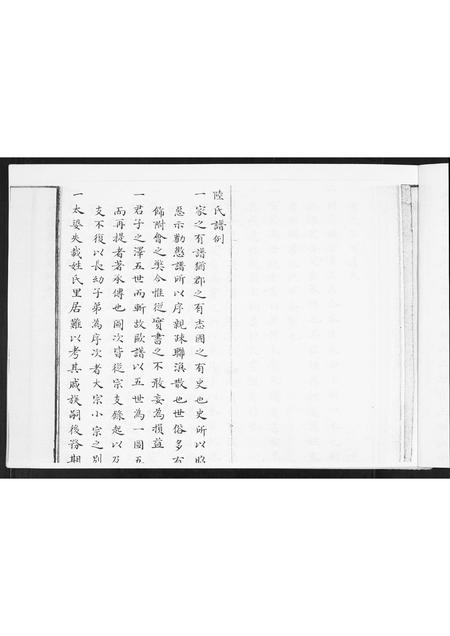 陸氏譜例
一家之有譜猶郡之有志國之有史也史所以昭
惡示勸懲譜所以序親疎聯渙散也世俗多有
飾附會之獘今惟從實書之不敢妄為損益
一君子之澤五世而斬故歐譜以五世為一圖五
而再提者著承傳也圖次皆從宗支錄起以及
支不復以長幼子弟為序次者大宗小宗之別
一太婆失載姓氏里居難以考其戚誼嗣後務期